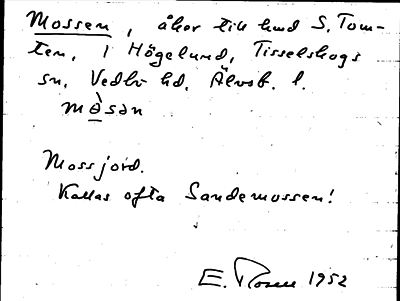 Mossen, åker till hmd S. Tom-
ten, i Högelund, Tisselskogs
sn, Vedbo hd. Älvsb. l.
mòsən
Mossjord.
Kallas ofta Sandemossen!
E. Rosell 1952